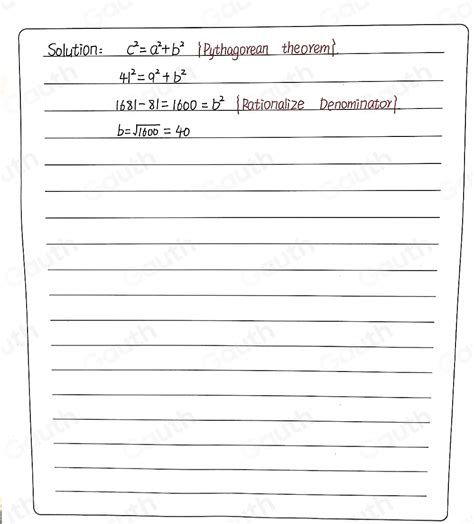 Solution: c²=a²+b² {Pythagorean theorem}.
41²=9²+b²
1681-81=1600=b² {Rationalize Denominator}
b=√1600=40